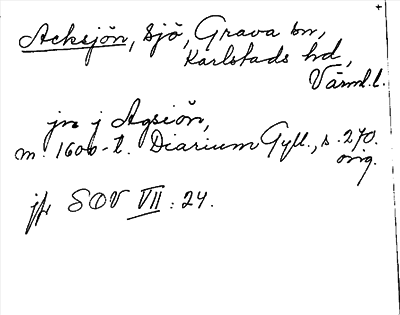 Acksjön, sjö, Grava sn,
Karlstads hd,
Värml. l.
jn j Agsiön,
m. 1600-t. Diarium Gyll., s. 270.
orig.
jfr SOV VII : 24.